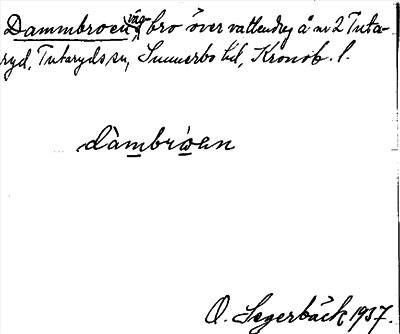 Dammbroen, väg bro över vattendrag å nr 2 Tuta-
ryd, Tutaryds sn, Sunnerbo hd, Kronob. l.
dàmbrωan
O. Segerbäck 1937.